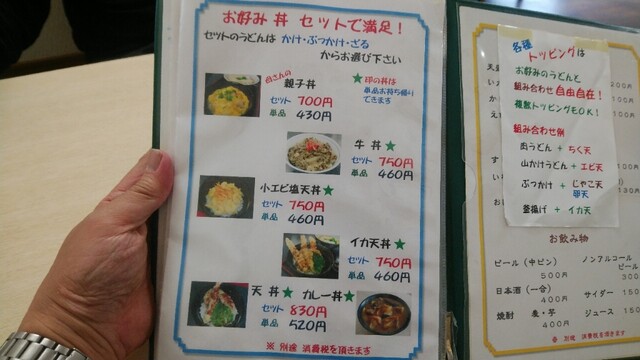 お好み丼 セットで満足！
セットのうどんは かけ・ぶっかけ・ざる
からお選び下さい
親子丼
★印の丼は
単品お持ち帰り
できます
セット 700円
単品 430円
牛丼★
セット 750円
単品 460円
小エビ塩天丼★
セット 750円
単品 460円
イカ天丼★
セット 750円
単品 460円
天丼★ カレー丼★
セット 830円
単品 520円
※ 別途 消費税を頂きます
各種
トッピングは
お好みのうどんと
組み合わせ自由自在！
複数トッピングもOK！
組み合わせ例
肉うどん + ちく天
山かけうどん + エビ天
ぶっかけ + じゃこ天
卵天
釜揚げ + イカ天
お飲み物
ビール（中ビン） ノンアルコール
ビール
500円 300
日本酒（一合） サイダー 150
400円
焼酎 麦・芋 ジュース 150
400円
別途 消費税を頂きます